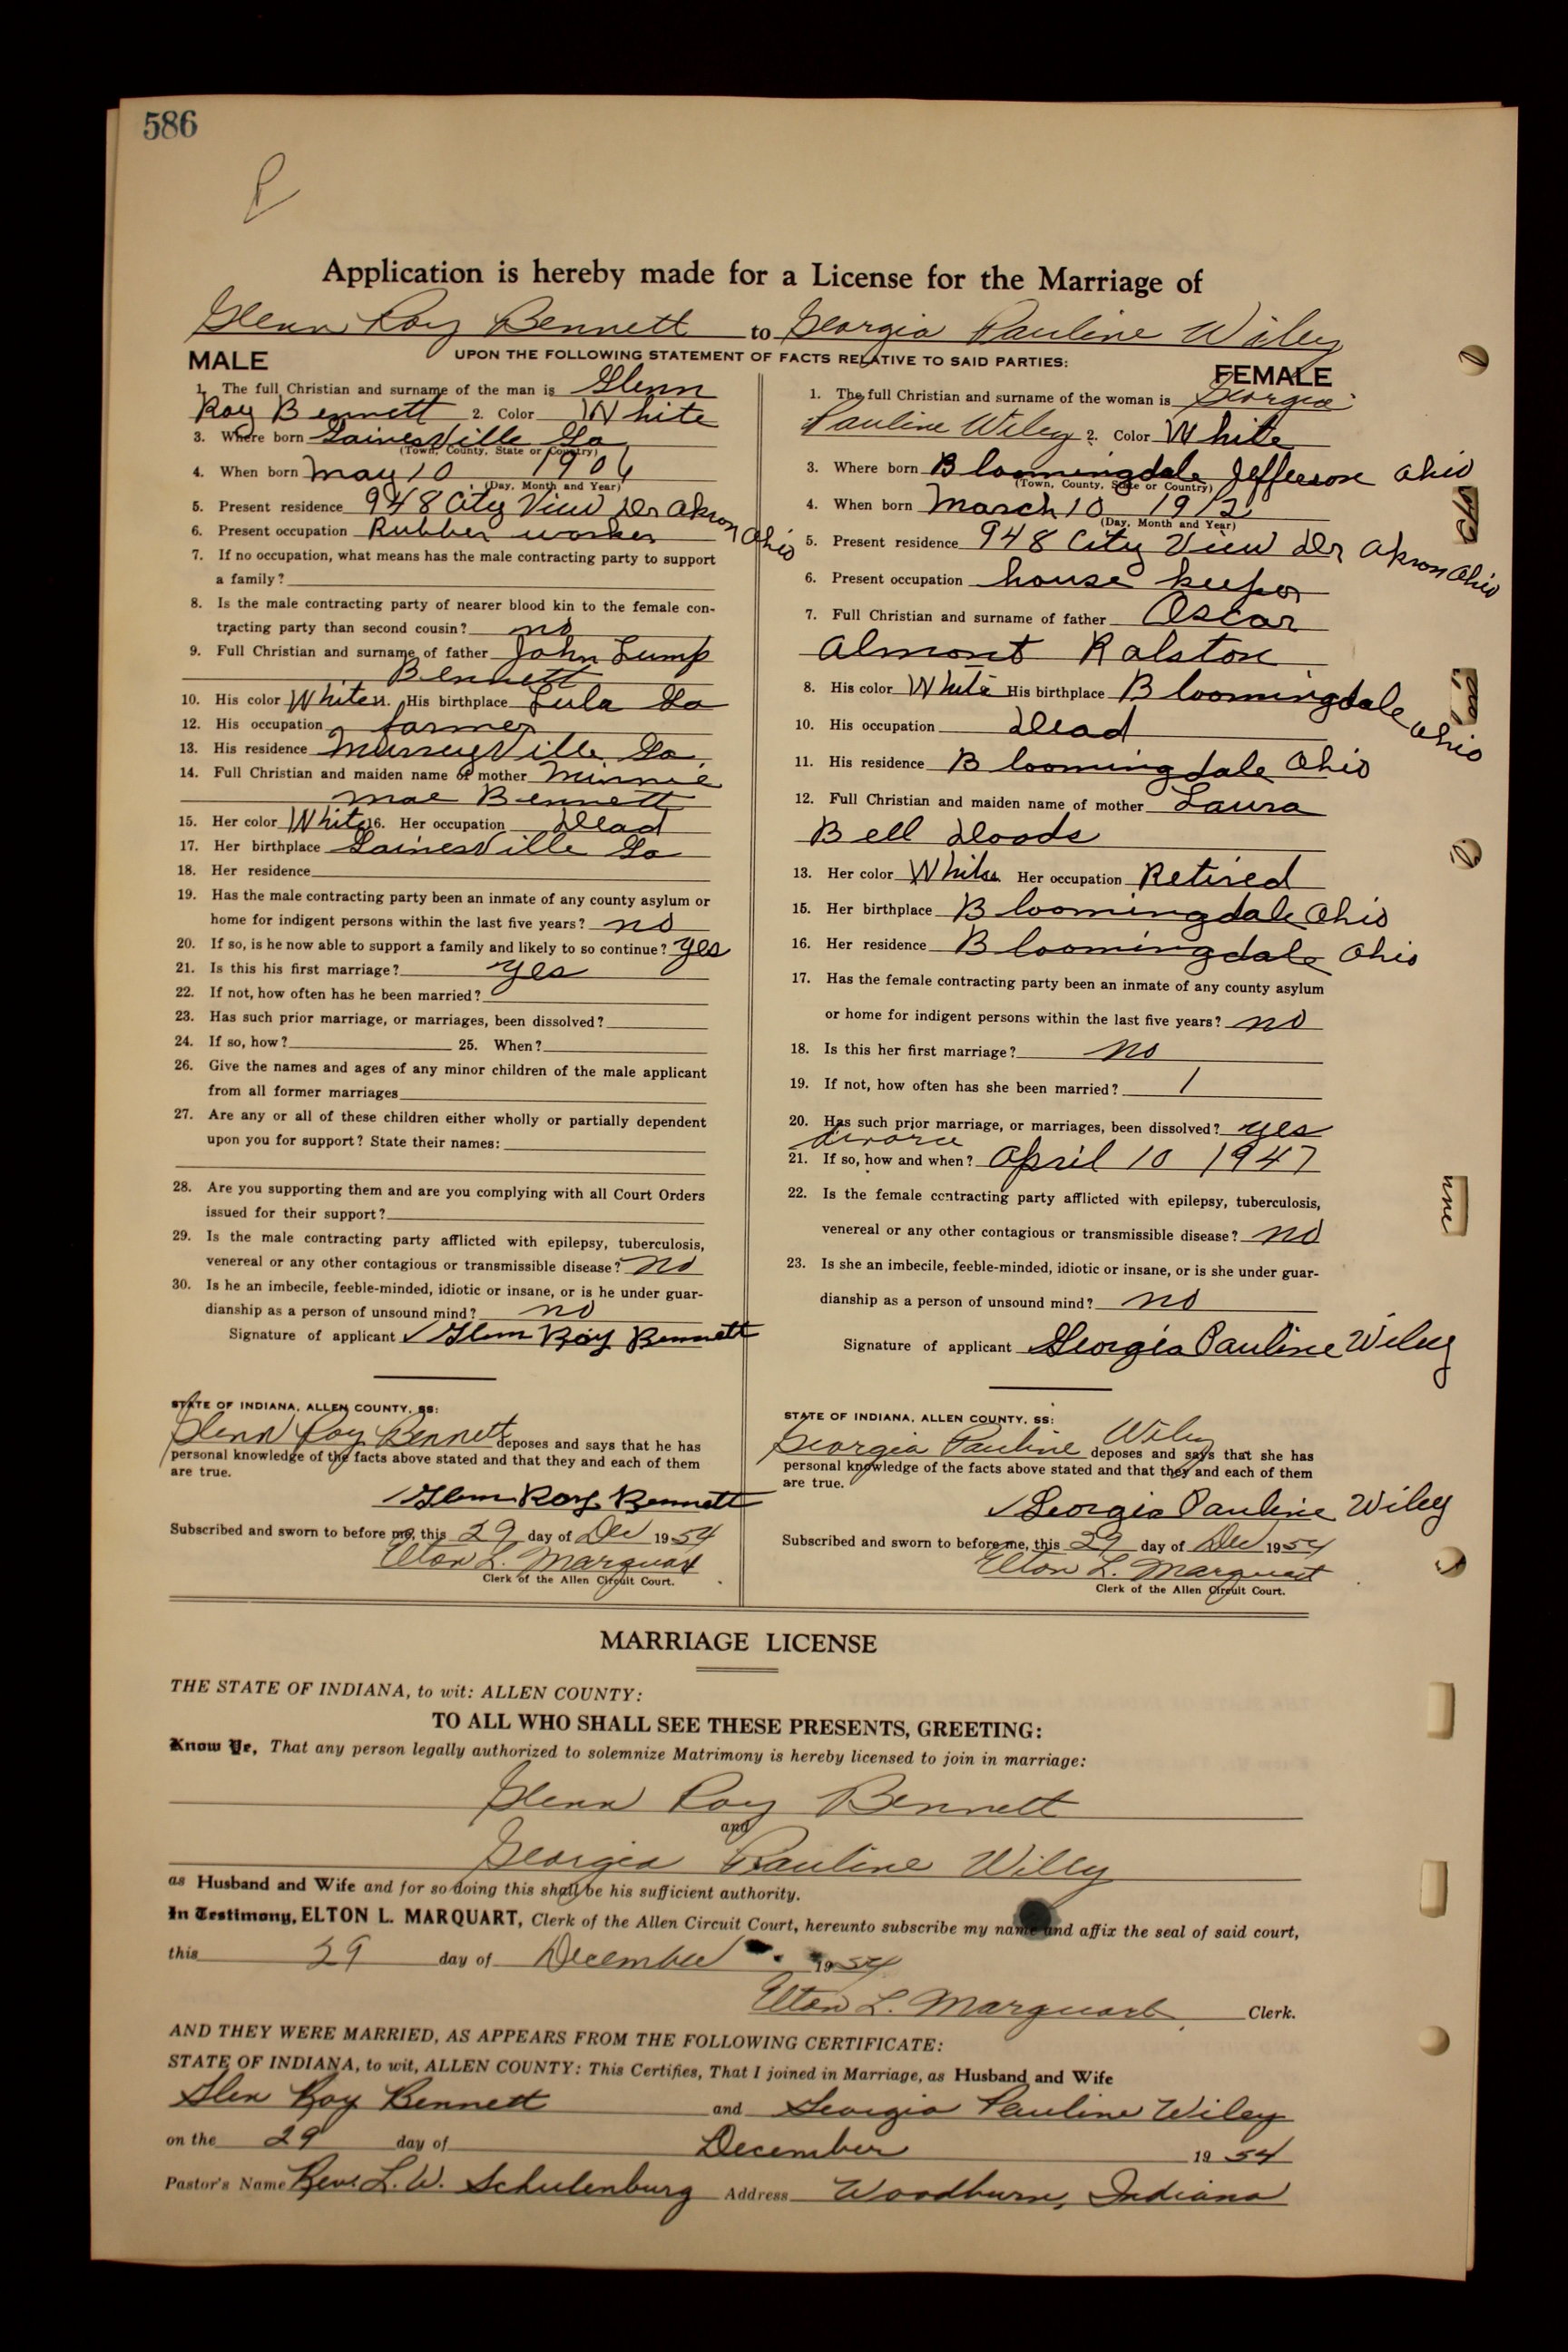 586
P
Application is hereby made for a License for the Marriage of
Glenn Roy Bennett to Georgia Pauline Wiley
UPON THE FOLLOWING STATEMENT OF FACTS RELATIVE TO SAID PARTIES:
MALE
1. The full Christian and surname of the man is Glenn
Roy Bennett 2. Color White
3. Where born Gainesville Ga
(Town, County, State or Country)
4. When born May 10 1906
(Day, Month and Year)
5. Present residence 948 City View Dr Akron Ohio
6. Present occupation Rubber worker
7. If no occupation, what means has the male contracting party to support
a family?
8. Is the male contracting party of nearer blood kin to the female con-
tracting party than second cousin? no
9. Full Christian and surname of father John Lump
Bennett
10. His color White 11. His birthplace Lula Ga
12. His occupation farmer
13. His residence Murreyville Ga.
14. Full Christian and maiden name of mother Minnie
Mae Bennett
15. Her color White 16. Her occupation Dead
17. Her birthplace Gainesville Ga
18. Her residence
19. Has the male contracting party been an inmate of any county asylum or
home for indigent persons within the last five years? no
20. If so, is he now able to support a family and likely to so continue? yes
21. Is this his first marriage? yes
22. If not, how often has he been married?
23. Has such prior marriage, or marriages, been dissolved?
24. If so, how? 25. When?
26. Give the names and ages of any minor children of the male applicant
from all former marriages
27. Are any or all of these children either wholly or partially dependent
upon you for support? State their names:
28. Are you supporting them and are you complying with all Court Orders
issued for their support?
29. Is the male contracting party afflicted with epilepsy, tuberculosis,
venereal or any other contagious or transmissible disease? no
30. Is he an imbecile, feeble-minded, idiotic or insane, or is he under guar-
dianship as a person of unsound mind? no
Signature of applicant Glenn Roy Bennett
STATE OF INDIANA, ALLEN COUNTY, SS:
Glenn Roy Bennett deposes and says that he has
personal knowledge of the facts above stated and that they and each of them
are true.
Glenn Roy Bennett
Subscribed and sworn to before me, this 29 day of Dec 1954
Elton L. Marquart
Clerk of the Allen Circuit Court.
FEMALE
1. The full Christian and surname of the woman is Georgia
Pauline Wiley 2. Color White
3. Where born Bloomingdale Jefferson Ohio
(Town, County, State or Country)
4. When born March 10 1912
(Day, Month and Year)
5. Present residence 948 City View Dr Akron Ohio
6. Present occupation house keeper
7. Full Christian and surname of father Oscar
Almont Ralston
8. His color White His birthplace Bloomingdale Ohio
10. His occupation Dead
11. His residence Bloomingdale Ohio
12. Full Christian and maiden name of mother Laura
Bell Doods
13. Her color White Her occupation Retired
15. Her birthplace Bloomingdale Ohio
16. Her residence Bloomingdale Ohio
17. Has the female contracting party been an inmate of any county asylum
or home for indigent persons within the last five years? no
18. Is this her first marriage? no
19. If not, how often has she been married? 1
20. Has such prior marriage, or marriages, been dissolved? yes
divorce
21. If so, how and when? April 10 1947
22. Is the female contracting party afflicted with epilepsy, tuberculosis,
venereal or any other contagious or transmissible disease? no
23. Is she an imbecile, feeble-minded, idiotic or insane, or is she under guar-
dianship as a person of unsound mind? no
Signature of applicant Georgia Pauline Wiley
STATE OF INDIANA, ALLEN COUNTY, SS:
Georgia Pauline Wiley deposes and says that she has
personal knowledge of the facts above stated and that they and each of them
are true.
Georgia Pauline Wiley
Subscribed and sworn to before me, this 29 day of Dec 1954
Elton L. Marquart
Clerk of the Allen Circuit Court.
MARRIAGE LICENSE
THE STATE OF INDIANA, to wit: ALLEN COUNTY:
TO ALL WHO SHALL SEE THESE PRESENTS, GREETING:
Know Ye, That any person legally authorized to solemnize Matrimony is hereby licensed to join in marriage:
Glenn Roy Bennett
and
Georgia Pauline Willy
as Husband and Wife and for so doing this shall be his sufficient authority.
In Testimony, ELTON L. MARQUART, Clerk of the Allen Circuit Court, hereunto subscribe my name and affix the seal of said court,
this 29 day of December 1954
Elton L. Marquart Clerk.
AND THEY WERE MARRIED, AS APPEARS FROM THE FOLLOWING CERTIFICATE:
STATE OF INDIANA, to wit, ALLEN COUNTY: This Certifies, That I joined in Marriage, as Husband and Wife
Glen Roy Bennett and Georgia Pauline Wiley
on the 29 day of December 1954
Pastor's Name Rev. L. W. Schulenburg Address Woodburn, Indiana